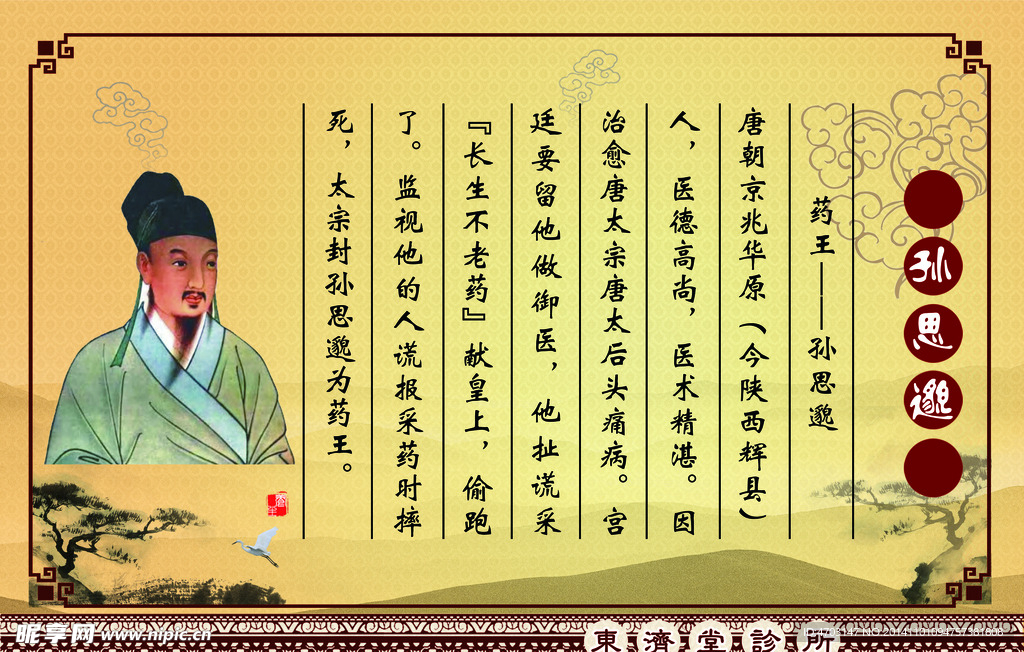 孙思邈
药王——孙思邈
唐朝京兆华原（今陕西辉县）
人，医德高尚，医术精湛。因
治愈唐太宗唐太后头痛病。宫
廷要留他做御医，他扯谎采
『长生不老药』献皇上，偷跑
了。监视他的人谎报采药时摔
死，太宗封孙思邈为药王。
昵享网 www.nipic.cn
東濟堂診所